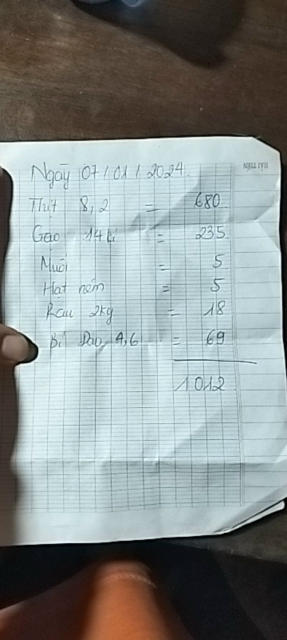 Ngày 07/01/2024
HẢI TIẾN
Thịt 8,2 = 680
Gạo 14kí = 235
Muối = 5
Hạt nêm = 5
Rau 2kg = 18
Bí Đao 4,6 = 69
1012